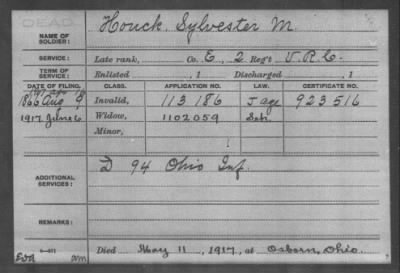 DEAD
NAME OF SOLDIER: Houck, Sylvester M.
SERVICE: Late rank, Co. E, 2 Reg't V.R.C.
TERM OF SERVICE: Enlisted , 1 Discharged , 1
DATE OF FILING. CLASS. APPLICATION NO. LAW. CERTIFICATE NO.
1866 Aug 9 Invalid, 113186 J age 923516
1917 June 6 Widow, 1102059
Minor,
ADDITIONAL SERVICES: D 94 Ohio Inf.
REMARKS:
Died May 11, 1917, at Osborn, Ohio.